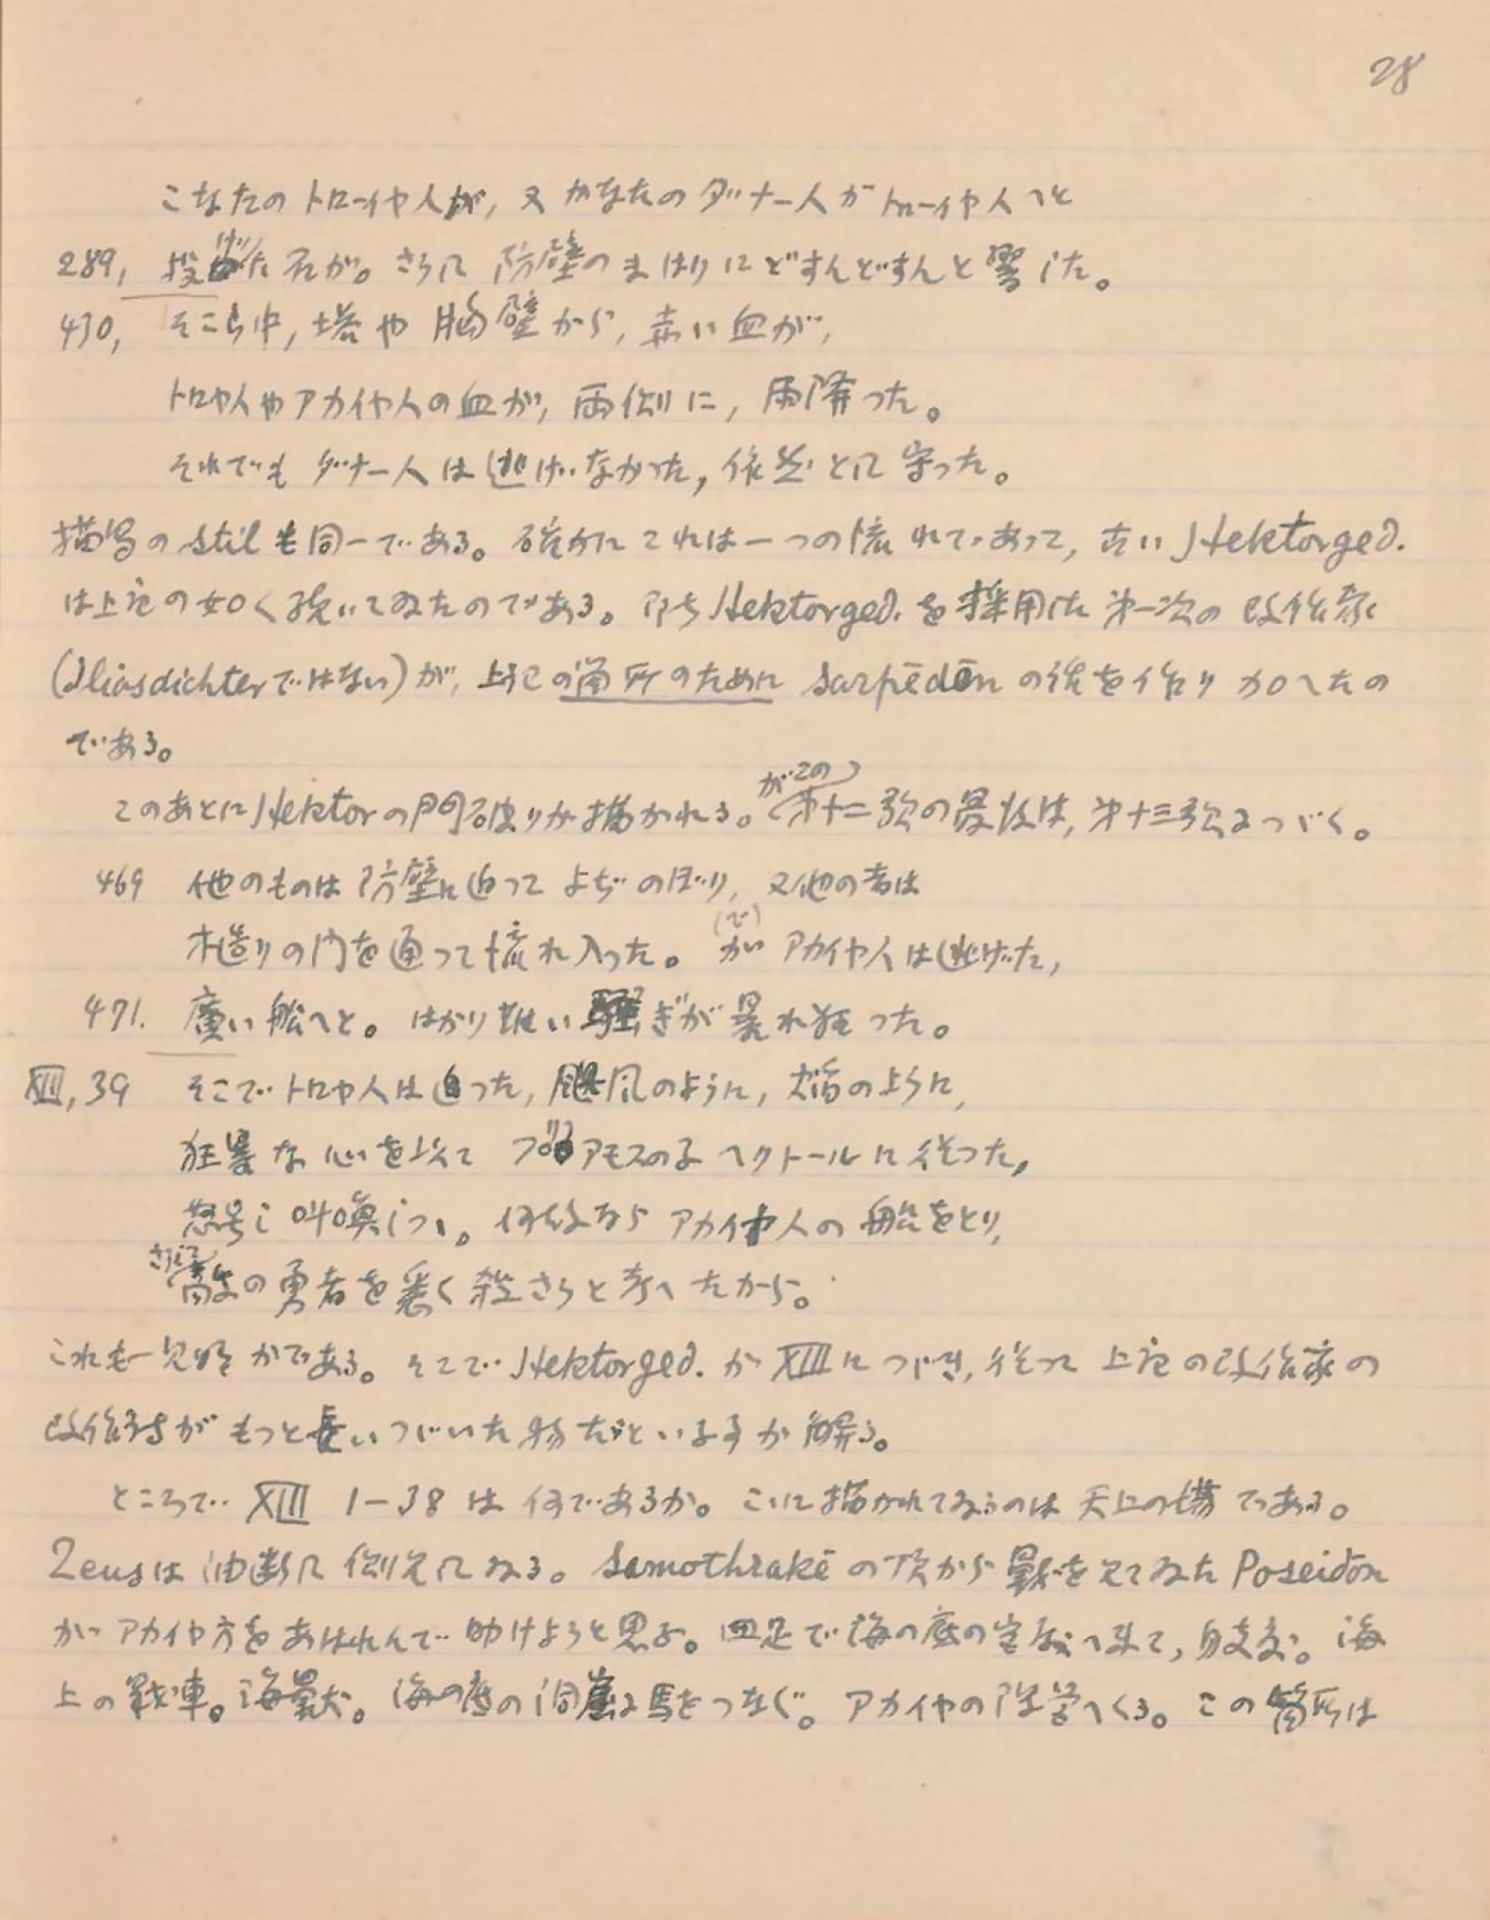 28
こなたのトローイヤ人が, 又かなたのダナー人がトローイヤ人へと
289, 投げた石が。さうして防壁のまはりにどすんどすんと響いた。
430, そこら中, 塔や胸壁から, 赤い血が,
トロヤ人やアカイヤ人の血が, 両側に, 雨降った。
それでもダナー人は逃げなかった, 依然として守った。
描写のstilも同一である。確かにこれは一つの流れであって, 古いHektorged.
は上記の如く続いてゐたのである。即ちHektorged.を採用した第一次の改作家
(Iliasdichterではない)が, 上記の箇所のためにSarpēdōnの後を作り加へたの
である。
このあとにHektorの門破りが描かれる。がこの第十二歌の最後は, 第十三歌につづく。
469 他のものは防壁に迫ってよぢのぼり, 又他の者は
木造りの門を通って流れ入った。が(で)アカイヤ人は逃げた,
471. 広い船へと。はかり難い騒ぎが暴れ狂った。
XIII, 39 そこでトロヤ人は迫った, 颶風のように, 焔のように,
狂暴な心を以てプリアモスの子ヘクトールに従った,
怒号し叫喚しつゝ。何故ならアカイヤ人の船をとり,
さうして敵の勇者を悉く殺さうと考へたから。
これも一見明かである。そこでHektorged.がXIIIにつづき, 従って上記の改作家の
改作詩がもっと長いつづいた物だといふ事が解る。
ところでXIII 1-38は何であるか。こゝに描かれてゐるのは天上の場である。
Zeusは油断して側見してゐる。Samothrakēの頂から戦を見てゐたPoseidon
がアカイヤ方をあはれんで助けようと思ふ。四足で海の底の宮殿へ来て, 身支度。海
上の戦車。海獣。海の底の洞窟に馬をつなぐ。アカイヤの陣営へくる。この箇所は